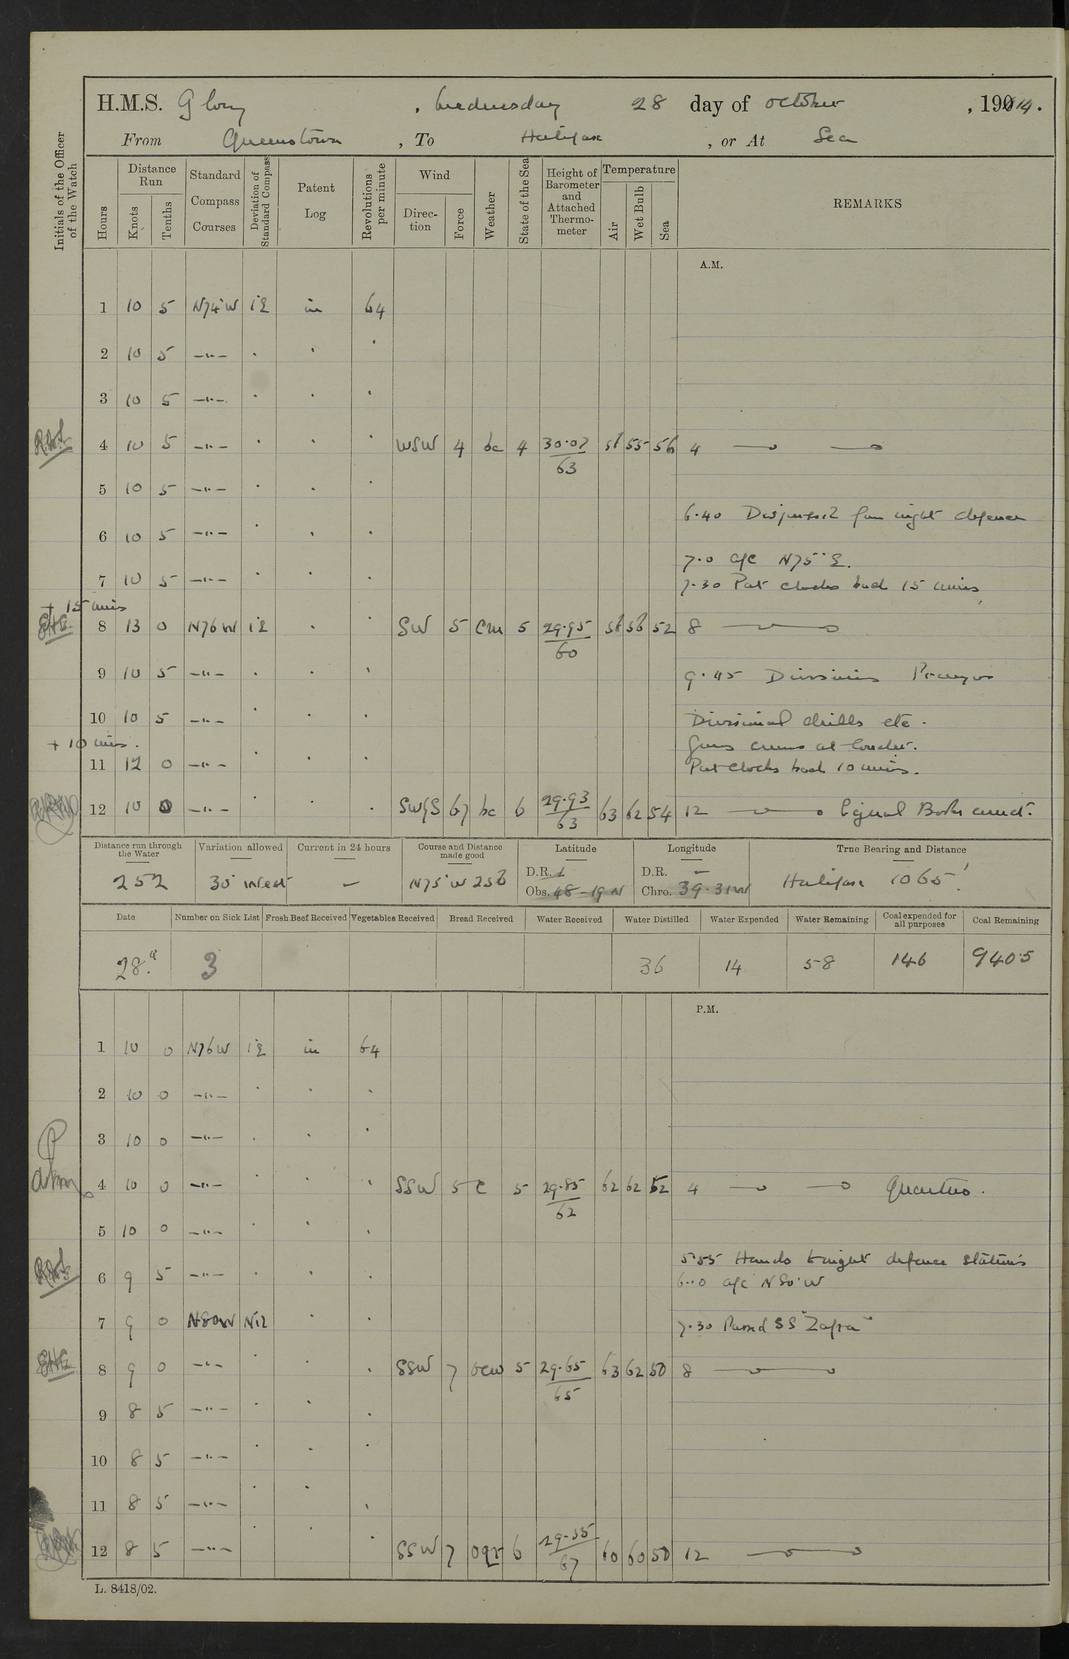 H.M.S. Glory, Wednesday 28 day of October, 1914.
From Queenstown, To Halifax, or At Sea
Initials of the Officer of the Watch
Hours
Distance Run
Knots
Tenths
Standard Compass Courses
Deviation of Standard Compass
Patent Log
Revolutions per minute
Wind
Direction
Force
Weather
State of the Sea
Height of Barometer and Attached Thermometer
Temperature
Air
Wet Bulb
Sea
REMARKS
A.M.
1 10 5 N74°W 1°E in 64
2 10 5 —"— · · ·
3 10 5 —"— · · ·
4 10 5 —"— · · · WSW 4 bc 4 30.02 63 58 55 56 4
5 10 5 —"— · · ·
6.40 Dispersed from night defence
6 10 5 —"— · · ·
7.0 a/c N75°E.
7 10 5 —"— · · ·
7.30 Put clocks back 15 mins
+ 15 mins
8 13 0 N76W 1°E · · SW 5 cm 5 29.95 60 58 58 52 8
9 10 5 —"— · · ·
9.45 Divisions Prayers
10 10 5 —"— · · ·
Divisional drills etc.
+ 10 mins.
Guns crews at loader.
11 12 0 —"— · · ·
Put clocks back 10 mins.
12 10 0 —"— · · · SWgS 67 bc 6 29.93 63 63 62 54 12 Signal Books mustd.
Distance run through the Water
Variation allowed
Current in 24 hours
Course and Distance made good
Latitude
Longitude
True Bearing and Distance
252 30° West — N75°W 256
D.R. Obs. 48-19 N
D.R. — Chro. 39.31W
Halifax 1065'
Date
Number on Sick List
Fresh Beef Received
Vegetables Received
Bread Received
Water Received
Water Distilled
Water Expended
Water Remaining
Coal expended for all purposes
Coal Remaining
28th 3 36 14 58 146 940.5
P.M.
1 10 0 N76W 1°E in 64
2 10 0 —"— · · ·
3 10 0 —"— · · ·
4 10 0 —"— · · · SSW 5 c 5 29.85 62 62 62 52 4 Quarters.
5 10 0 —"— · · ·
5.55 Hands to night defence stations
6 9 5 —"— · · ·
6.0 a/c N80°W
7 9 0 N80W Nil · ·
7.30 Passed SS "Zafra"
8 9 0 —"— · · · SSW 7 ocw 5 29.65 65 63 62 50 8
9 8 5 —"— · · ·
10 8 5 —"— · · ·
11 8 5 —"— · · ·
12 8 5 —"— · · · SSW 7 oqr 6 29.35 67 60 60 50 12
L. 8418/02.